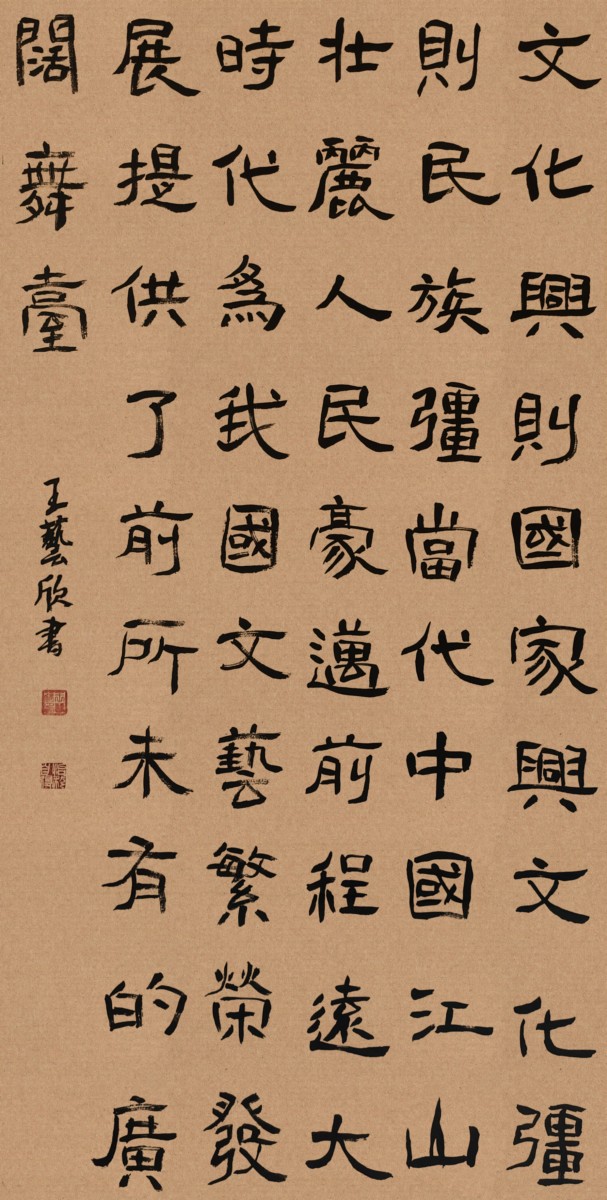 文化興則國家興文化彊
則民族彊當代中國江山
壯麗人民豪邁前程遠大
時代為我國文藝繁榮發
展提供了前所未有的廣
闊舞臺
王藝欣書